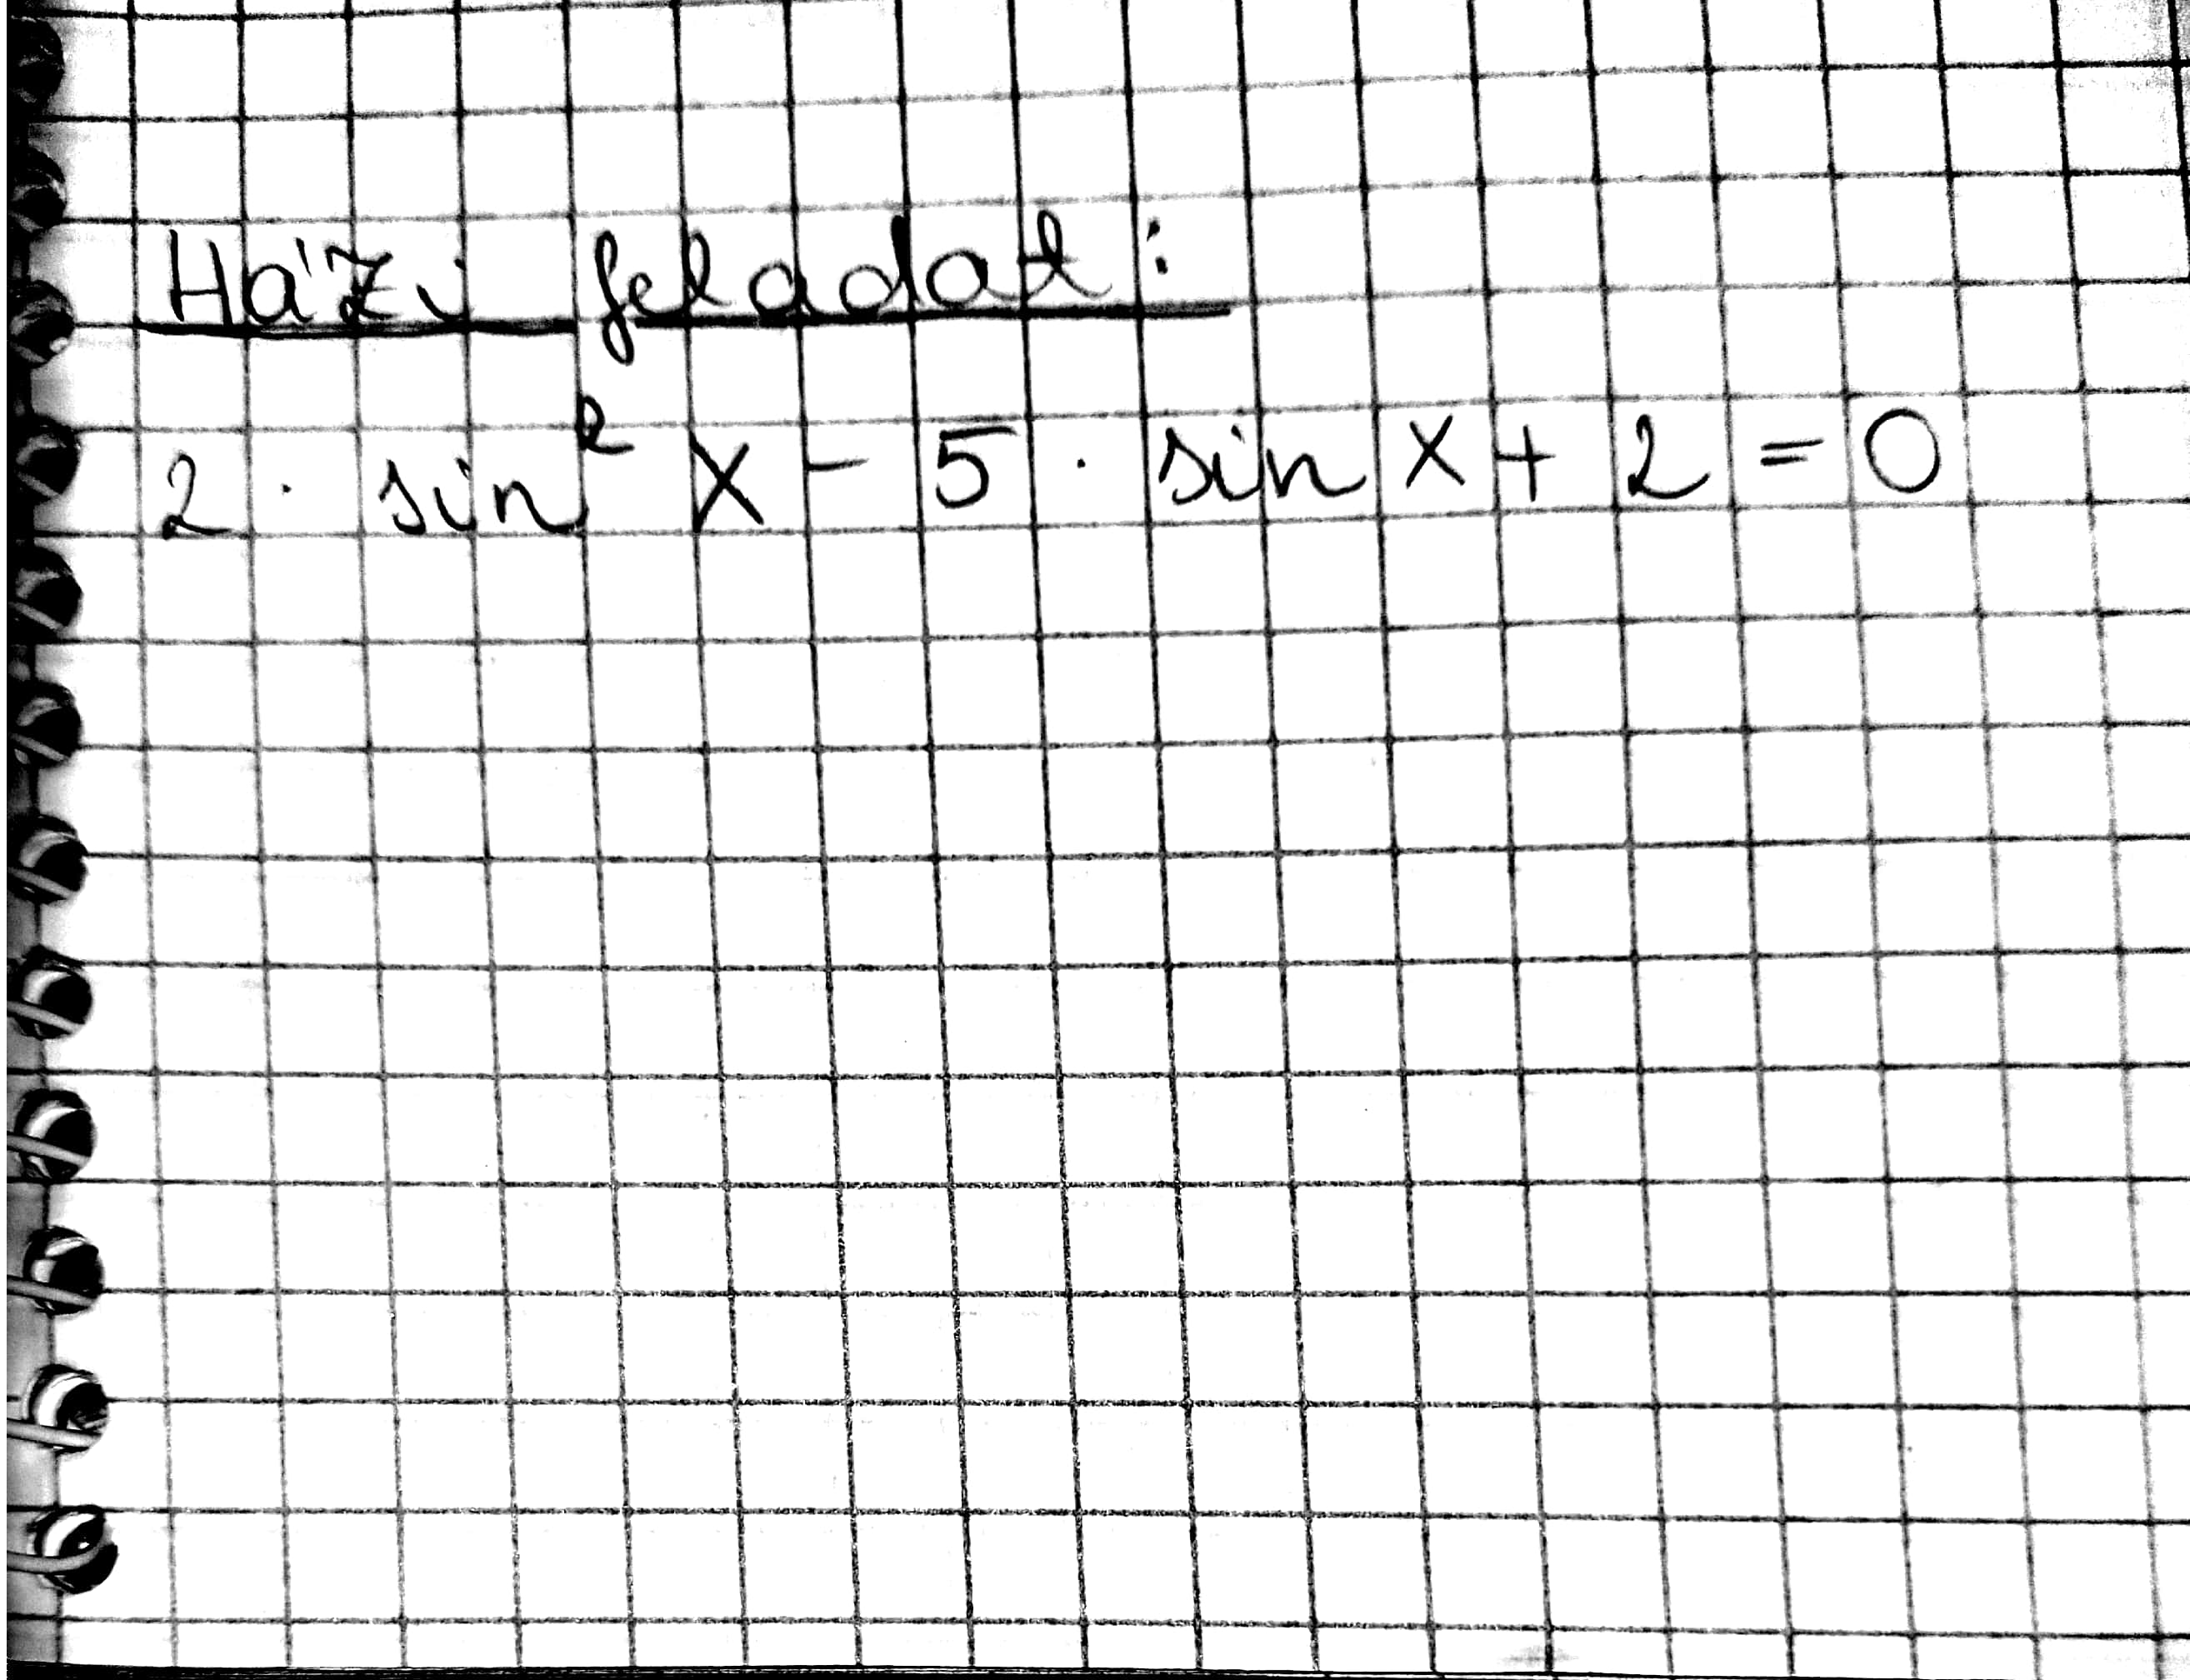 Házi feladat:
2 · sin² x - 5 · sin x + 2 = 0